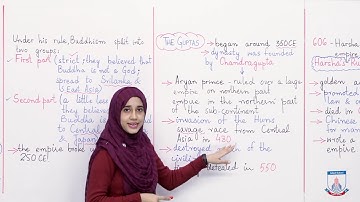 Under his rule, Buddhism split into
two groups:
First part (strict; they believed that
Buddha is not a God;
spread to Srilanka &
East Asia)
Second part (a little less
they believed
Buddha
to Central
& Japan
the empire broke
250 CE!
THE GUPTAS → began around 350CE
→ dynasty was founded
by Chandragupta
→ Aryan prince - ruled over a large
empire on northern part
empire in the northern part
of the sub-continent
→ invasion of the Huns
savage race from Central
Asia in 480
→ destroyed of the
defeated in 550
606 - Harsha
empire
Harsha's
→ golden
→ promoted
law &
→ died in
→ Chinese
for man
→ wrote a
empire